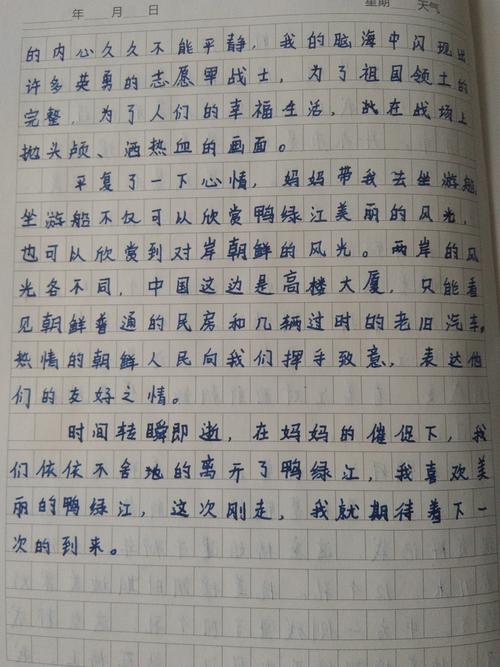 年 月 日 星期 天气
的内心久久不能平静，我的脑海中闪现出
许多英勇的志愿军战士，为了祖国领土的
完整，为了人们的幸福生活，战在战场上
抛头颅、洒热血的画面。
平复了一下心情，妈妈带我去坐游船，
坐游船不仅可以欣赏鸭绿江美丽的风光，
也可以欣赏到对岸朝鲜的风光。两岸的风
光各不同，中国这边是高楼大厦，只能看
见朝鲜普通的民房和几辆过时的老旧汽车。
热情的朝鲜人民向我们挥手致意，表达他
们的友好之情。
时间转瞬即逝，在妈妈的催促下，我
们依依不舍地的离开了鸭绿江，我喜欢美
丽的鸭绿江，这次刚走，我就期待着下一
次的到来。